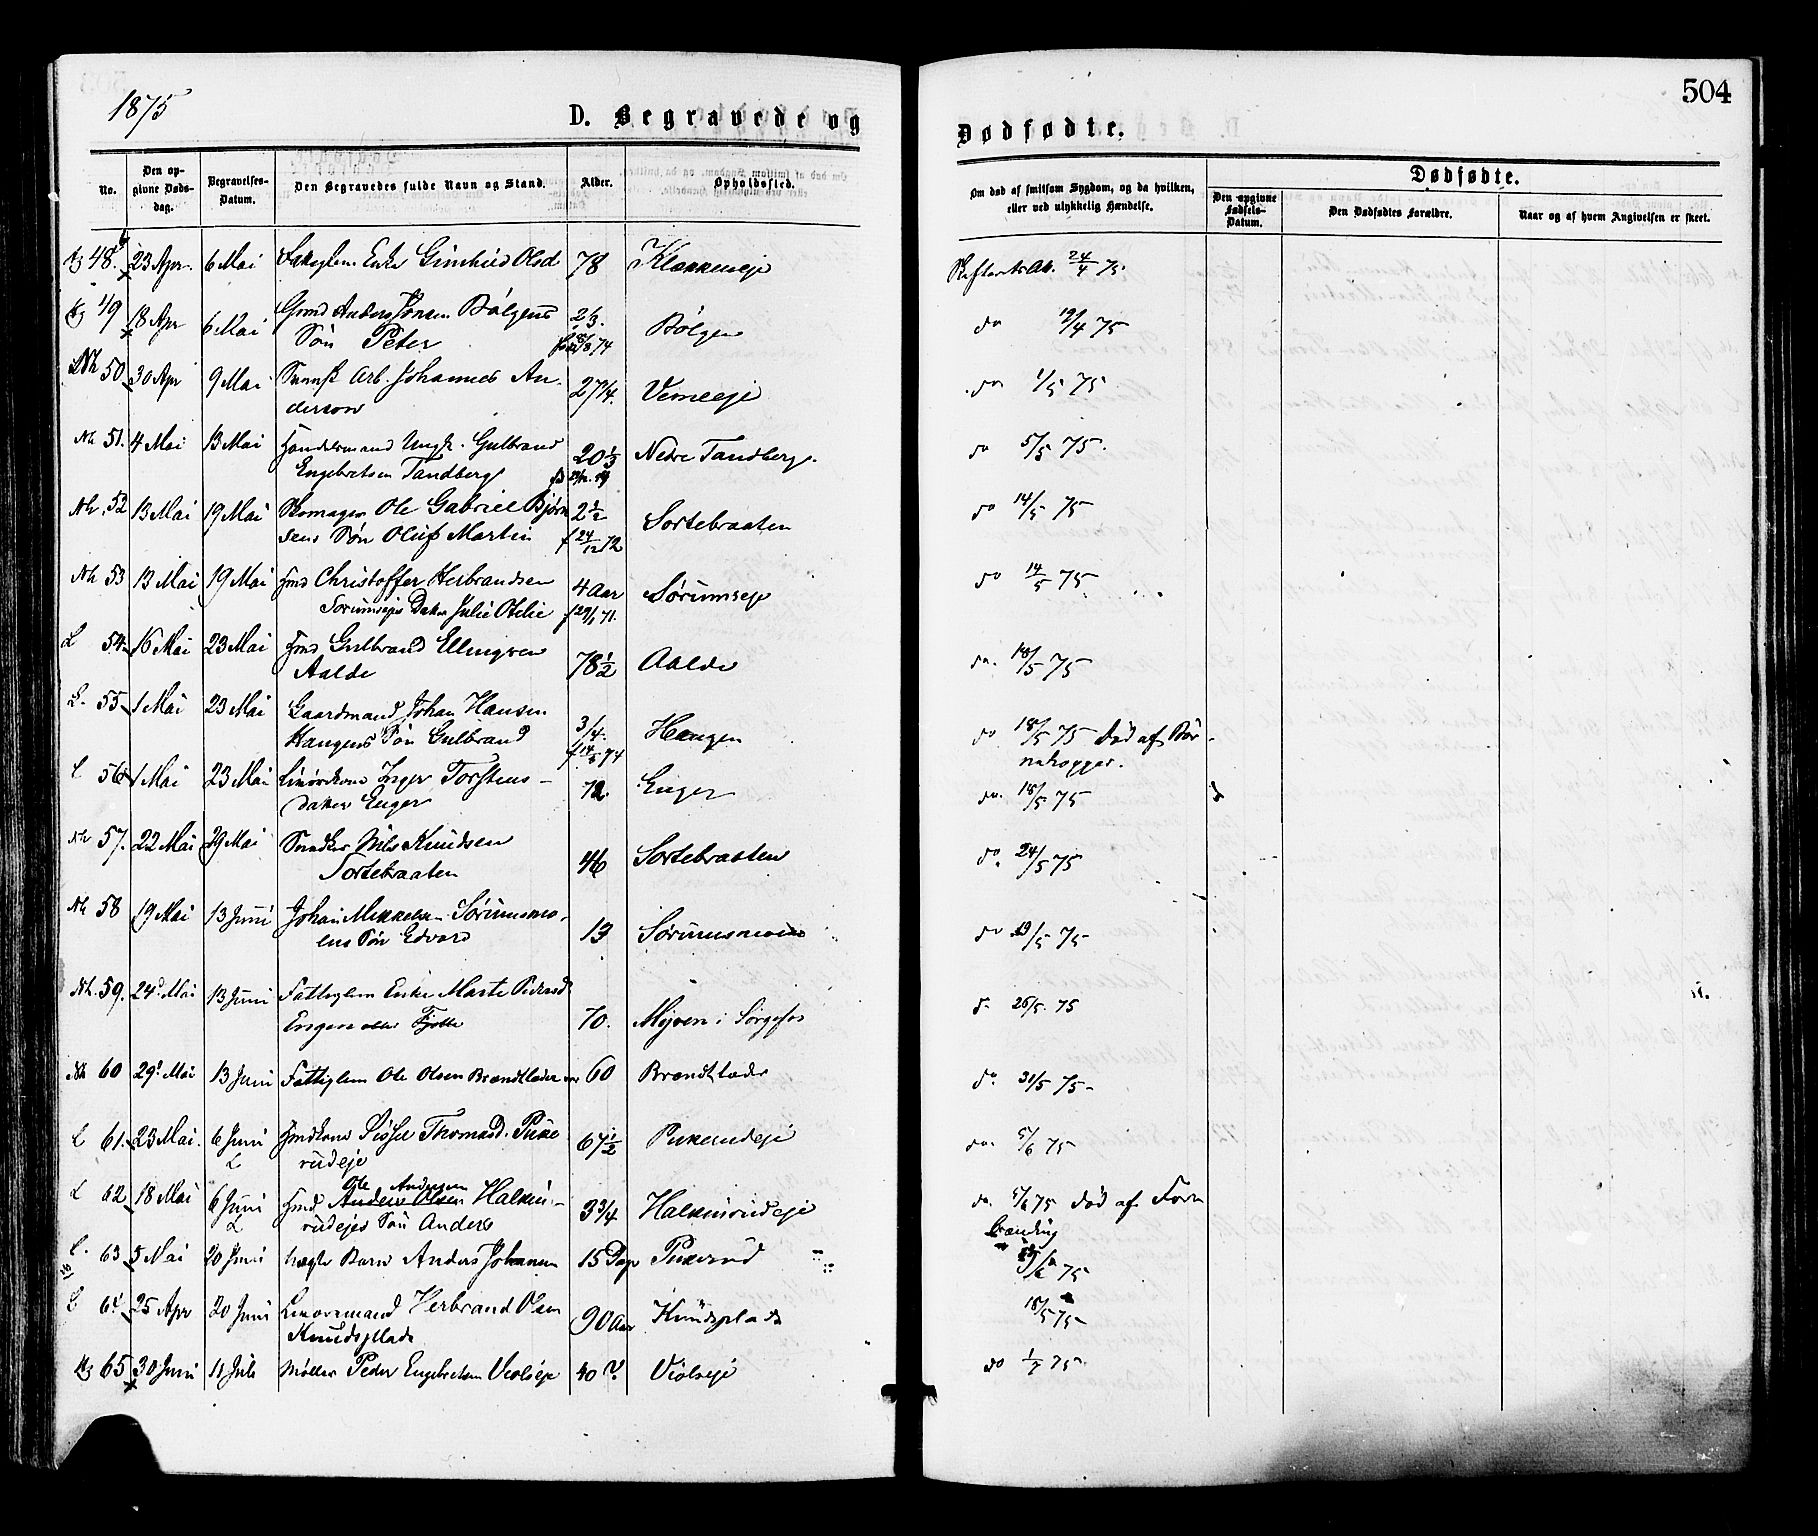 1875
504
D. Begravede og Dødfødte.
No.
Den opgivne Dødsdag.
Begravelses-Datum.
Den Begravedes fulde Navn og Stand.
Alder.
Opholdssted.
Om død af smitsom Sygdom, og da hvilken, eller ved ulykkelig Hændelse.
Dødfødte.
Den opgivne Fødsels-Datum.
Den Dødfødtes Forældre.
Naar og af hvem Angivelsen er skeet.
48. 23 Apr. 6 Mai Enke Olsd 78 Skifterets At. 24/4 75.
49 18 Apr 6 Mai Gmd Anders Jonsen Bølgens 2/3. Bølgen do 19/4 75
Søn Peter
Nh 50 30 Apr 9 Mai Svensk Arb. Johannes An- 27 1/4. Vemeeje do 1/5 75.
derson
Nh 51. 4 Mai 13 Mai Handelsmand Ungk. Gulbrand 20 1/3 Nedre Tandberg. do 5/5 75.
Engebretsen Tandberg
Nh. 52 13 Mai 19 Mai Skomager Ole Gabriel Bjørn 2 1/2 Sortebraaten do 14/5 75
sens Søn Oluf Martin f 24/12 72
Nh 53 13 Mai 19 Mai Hmd Christoffer Herbrandsen 4 Aar Sørumseje do 14/5 75
Sørumsejes Datter Julie Otelie f 29/1 71.
L 54 16 Mai 23 Mai Hmd Gulbrand Ellingsen 78 1/2 Aalde do. 18/5 75
Aalde
L. 55 1 Mai 23 Mai Gaardmand Johan Hansen 3/4. Haugen do 18/5 75 Død af Bør-
Haugens Søn Gulbrand f 14/5 74 nekopper.
L 56 1 Mai 23 Mai Inger Torstens- 72. Enger do. 18/5 75
datter Enger
Nh 57. 22 Mai 29 Mai Snedker Nils Knudsen 46 Sortebraaten do. 24/5 75
Sortebraaten
Nh 58 19 Mai 13 Juni Johan Mikkelsen Sørumsmo- 13 Sørumsmoen do 19/5 75
ens Søn Edvard
Nh. 59. 24d Mai 13 Juni Fattiglem Enke Marte Pedersd 70. Mejven i Sørgefos do 26/5. 75
eller
Nh 60 29d Mai 13 Juni Fattiglem Ole Olsen 60 do. 31/5 75
L 61. 23 Mai. 6 Juni Hmdkone Sissel Thomasd. Puke 67 1/2 Pukerudeje do. 5/6 75
L rudeje
Ole Andersen
L 62 18 Mai 6 Juni Hmd Anders Olsen Halkin- 3 3/4 Halkinrudeje do. 5/6 75 Død af For-
L rudejes Søn Anders brænding
L. 63 5 Mai 20 Juni Barn Anders Johannes 15 Dage Pukerud 75
L 64 25 Apr 20 Juni Herbrand Olsen 90 Aar Knudsplads 18/5 75
Knudsplads
65 30 Juni 11 Juli Møller Peder Engebretsen Violseje 40 Violseje do 1/7 75.